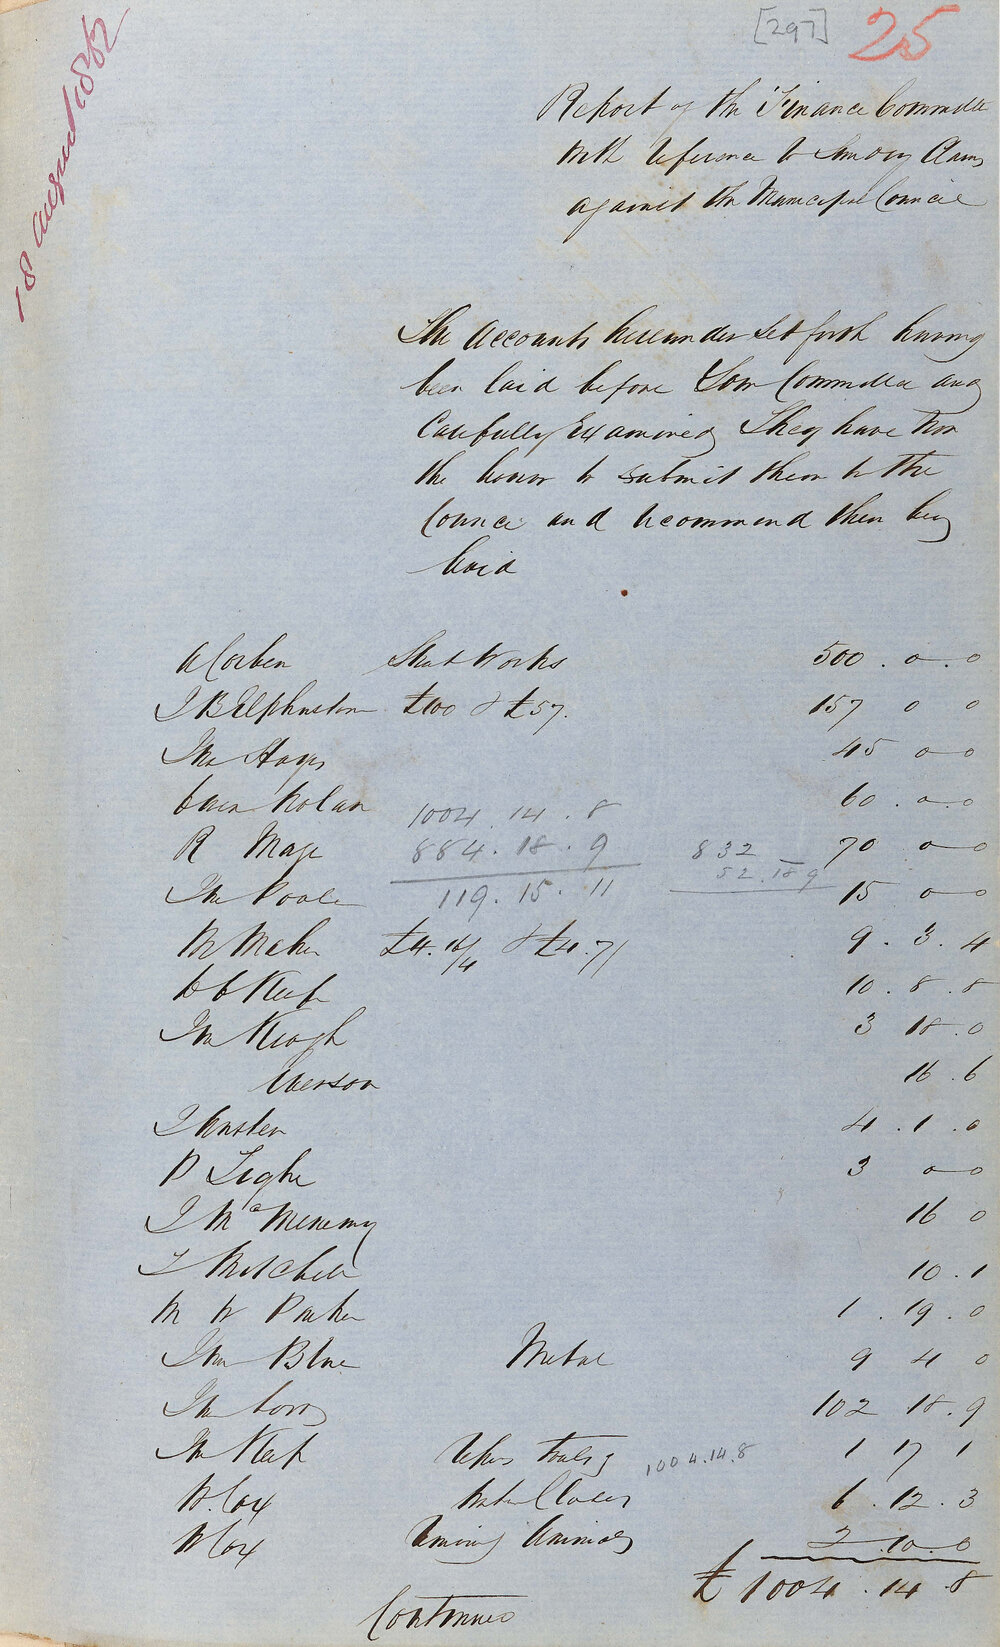 [297] 25
18 August 1862
Report of the Finance Committee
with reference to Sundry Claims
against the Municipal Council
The Accounts hereunder set forth having
been laid before Your Committee and
Carefully Examined They have now
the honor to submit them to the
Council and recommend their being
paid
A Corben Street Works 500 . 0 . 0
J B Elphinstone £100 & £57. 157 0 0
Jno Hays 45 0 0
Nolan 60 . 0 . 0
1004 . 14 . 8
R Mage 70 0 0
884 . 18 . 9 832 —
52 . 18 9
Jno Poole 15 0 0
119 . 15 . 11
M Maher £4. 16/4 & £4. 7/ 9 . 3 . 4
Keep 10 . 8 . 8
Jno Keogh 3 18 . 0
Iverson 16 . 6
J 4 . 1 . 0
P Tighe 3 0 0
J McMenemy 16 0
T Mitchell 10 . 1
M W Parker 1 . 19 . 0
Jno Blue Metal 9 4 0
Jno 102 18 . 9
Jno Keep Tools 1004.14.8 1 17 1
W. Cox Water Closes 6 . 12 . 3
W Cox Animals 2 . 10 . 0
£ 1004 . 14 . 8
Continued